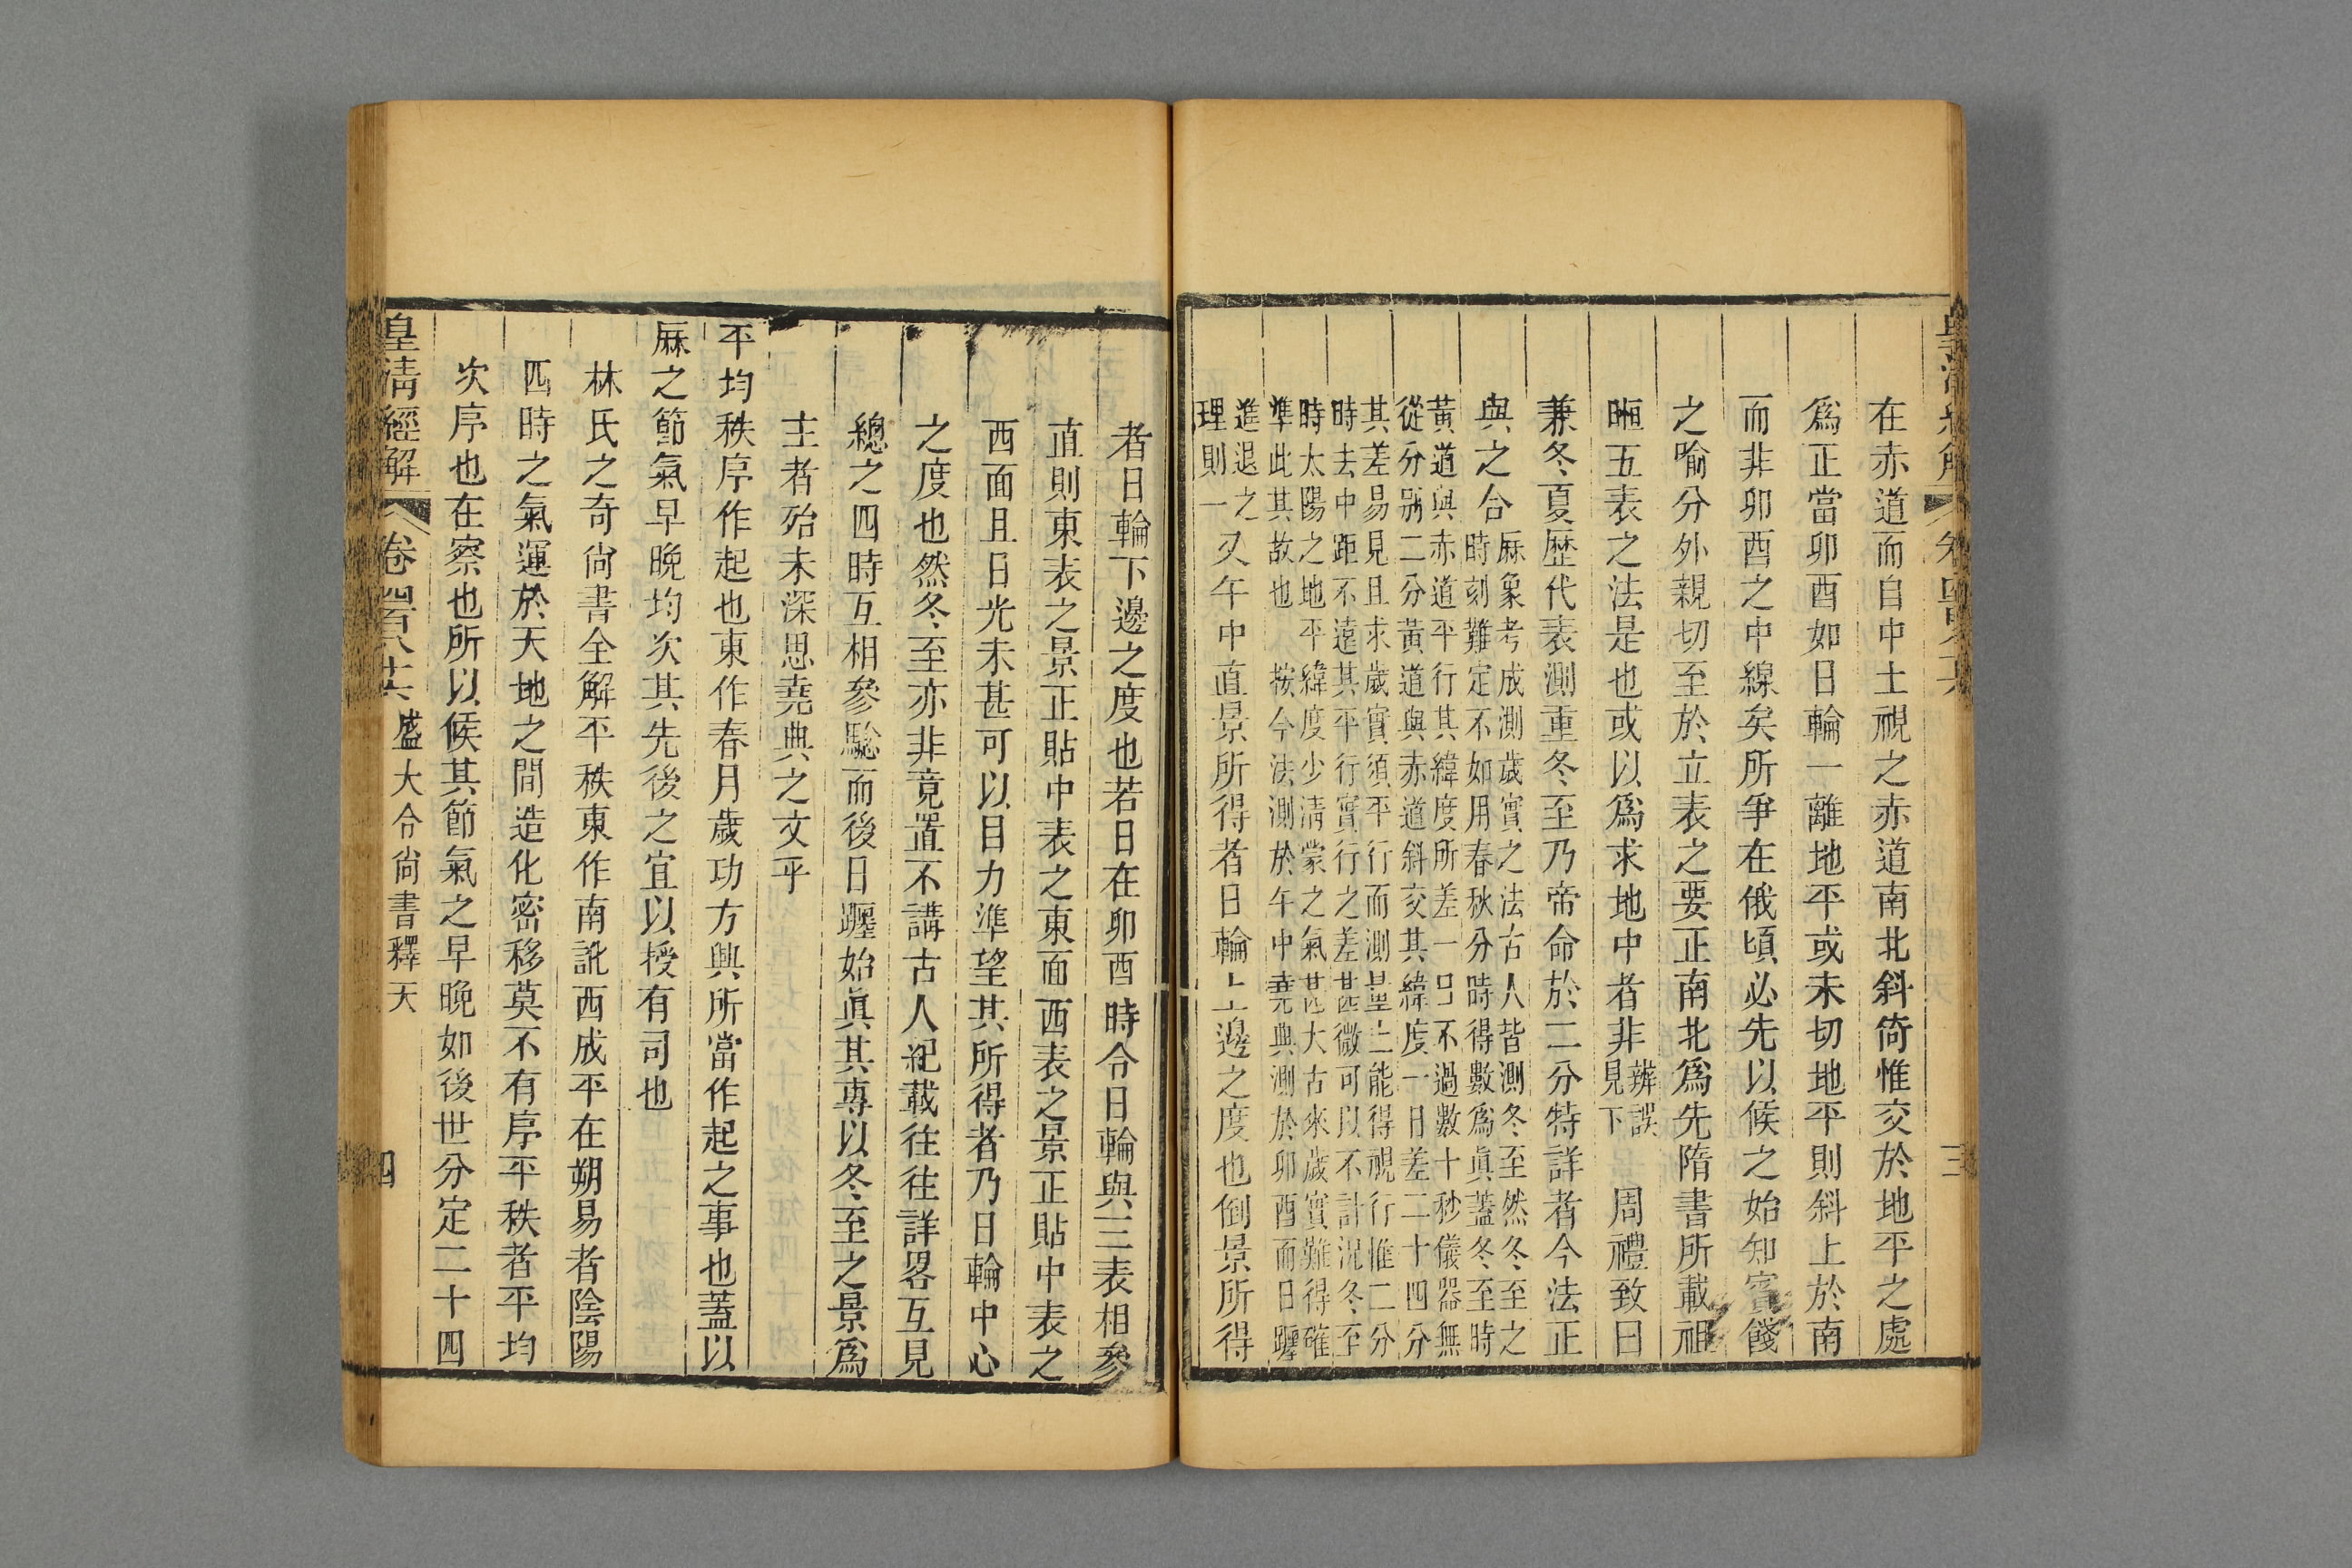 在赤道而自中土視之赤道南北斜倚惟交於地平之處
爲正當卯酉如日輪一離地平或未切地平則斜上於南
而非卯酉之中線矣所爭在俄頃必先以候之始知賓餞
之喻分外親切至於立表之要正南北爲先隋書所載祖
暅五表之法是也或以爲求地中者非
辨誤
見下
周禮致日
兼冬夏歴代表測重冬至乃帝命於二分特詳者今法正
與之合
厤象考成測歲實之法古人皆測冬至然冬至之
時刻難定不如用春秋分時得數爲眞蓋冬至時
黃道與赤道平行其緯度所差一日不過數十秒儀器無
從分別二分黃道與赤道斜交其緯度一日差二十四分
其差易見且求歲實須平行而測量止能得視行惟二分
時去中距不遠其平行實行之差甚微可以不計況冬至
時太陽之地平緯度少淸蒙之氣甚大古來歲實難得確
準此其故也
按今法測於午中堯典測於卯酉而日躔
進退之
理則一
又午中直景所得者日輪上邊之度也倒景所得
者日輪下邊之度也若日在卯酉時令日輪與三表相參
直則東表之景正貼中表之東面西表之景正貼中表之
西面且日光未甚可以目力準望其所得者乃日輪中心
之度也然冬至亦非竟置不講古人紀載往往詳畧互見
總之四時互相參驗而後日躔始眞其專以冬至之景爲
主者殆未深思堯典之文乎
平均秩序作起也東作春月歲功方興所當作起之事也蓋以
厤之節氣早晚均次其先後之宜以授有司也
林氏之奇尙書全解平秩東作南訛西成平在朔易者陰陽
四時之氣運於天地之間造化密移莫不有序平秩者平均
次序也在察也所以候其節氣之早晚如後世分定二十四
皇淸經解
卷四百八十六
盛大令尙書釋天
四